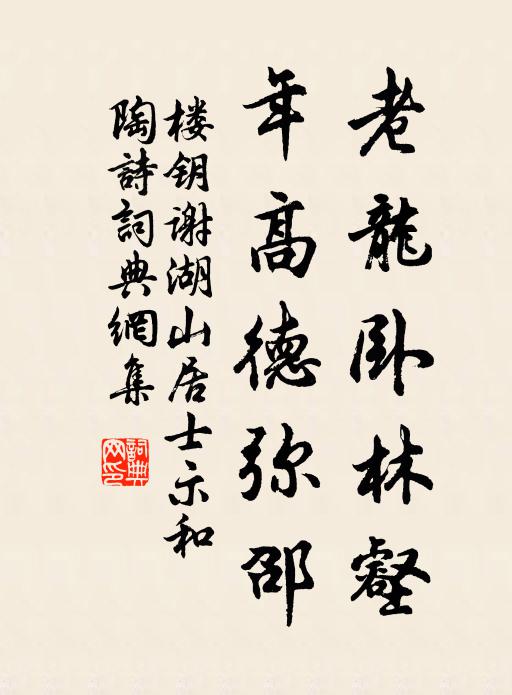 老龍臥林壑
年高德弥邵
楼钥谢湖山居士示和
陶詩詞典網集
詞典網印